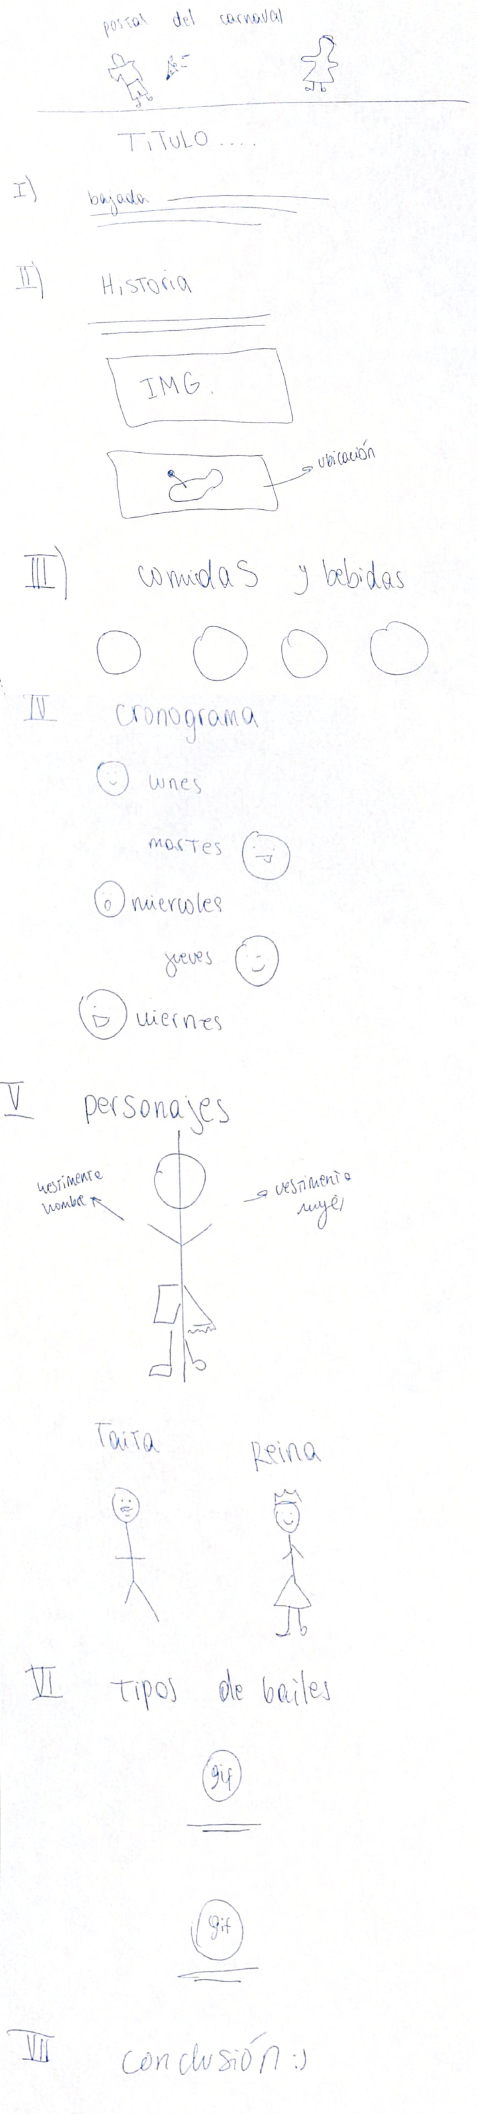 postal del carnaval
TITULO....
I) bajada
II) Historia
IMG.
ubicación
III) comidas y bebidas
IV cronograma
lunes
martes
miercoles
jueves
viernes
V personajes
vestimenta
hombre
vestimenta
mujer
Taita
Reina
VI Tipos de bailes
gif
gif
VII conclusión :)